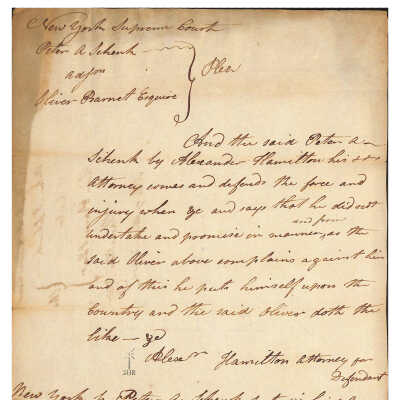 New York Supreme Court
Peter A Schenk
ads
Plea
Oliver Barnet Esquire
And the said Peter A
Schenk by Alexander Hamilton his
Attorney comes and defends the force and
injury when &c and says that he did not
and form
undertake and promise in manner, as the
said Oliver above complains against him
and of this he puts himself upon the
Country and the said Oliver doth the
like — &c
Alexr Hamilton Attorney for
Defendant
New York